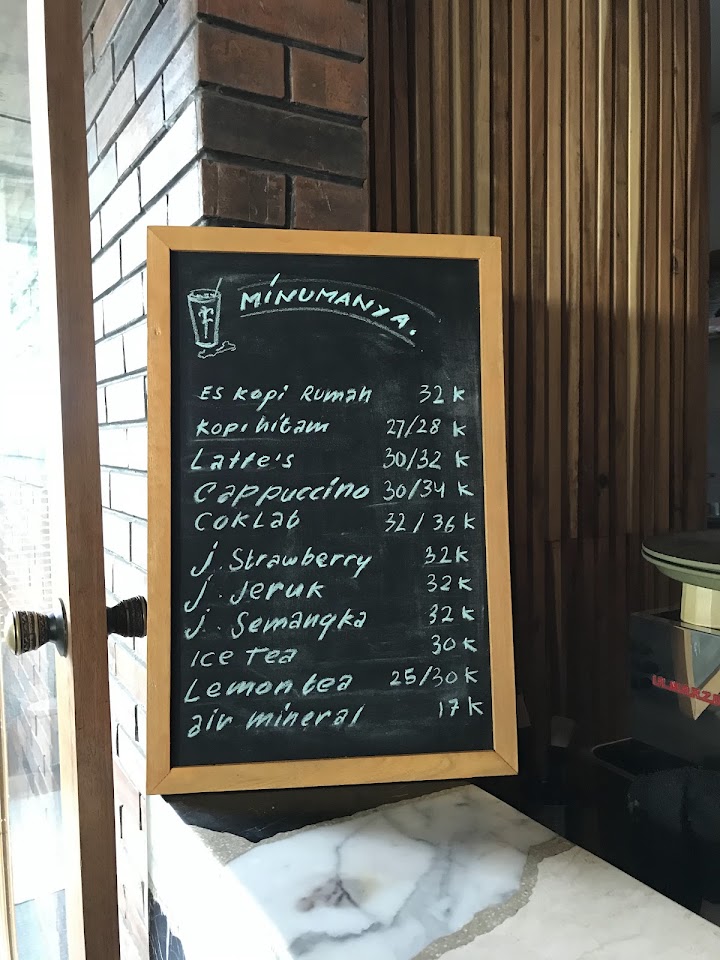 MINUMANYA.
ES KOPI RUMAH 32 K
KOPI hitam 27/28 K
Latte's 30/32 K
Cappuccino 30/34 K
COKLAb 32/36 K
j. Strawberry 32K
j. Jeruk 32K
j. Semangka 32 K
ICE Tea 30K
Lemon tea 25/30 K
air mineral 17 K